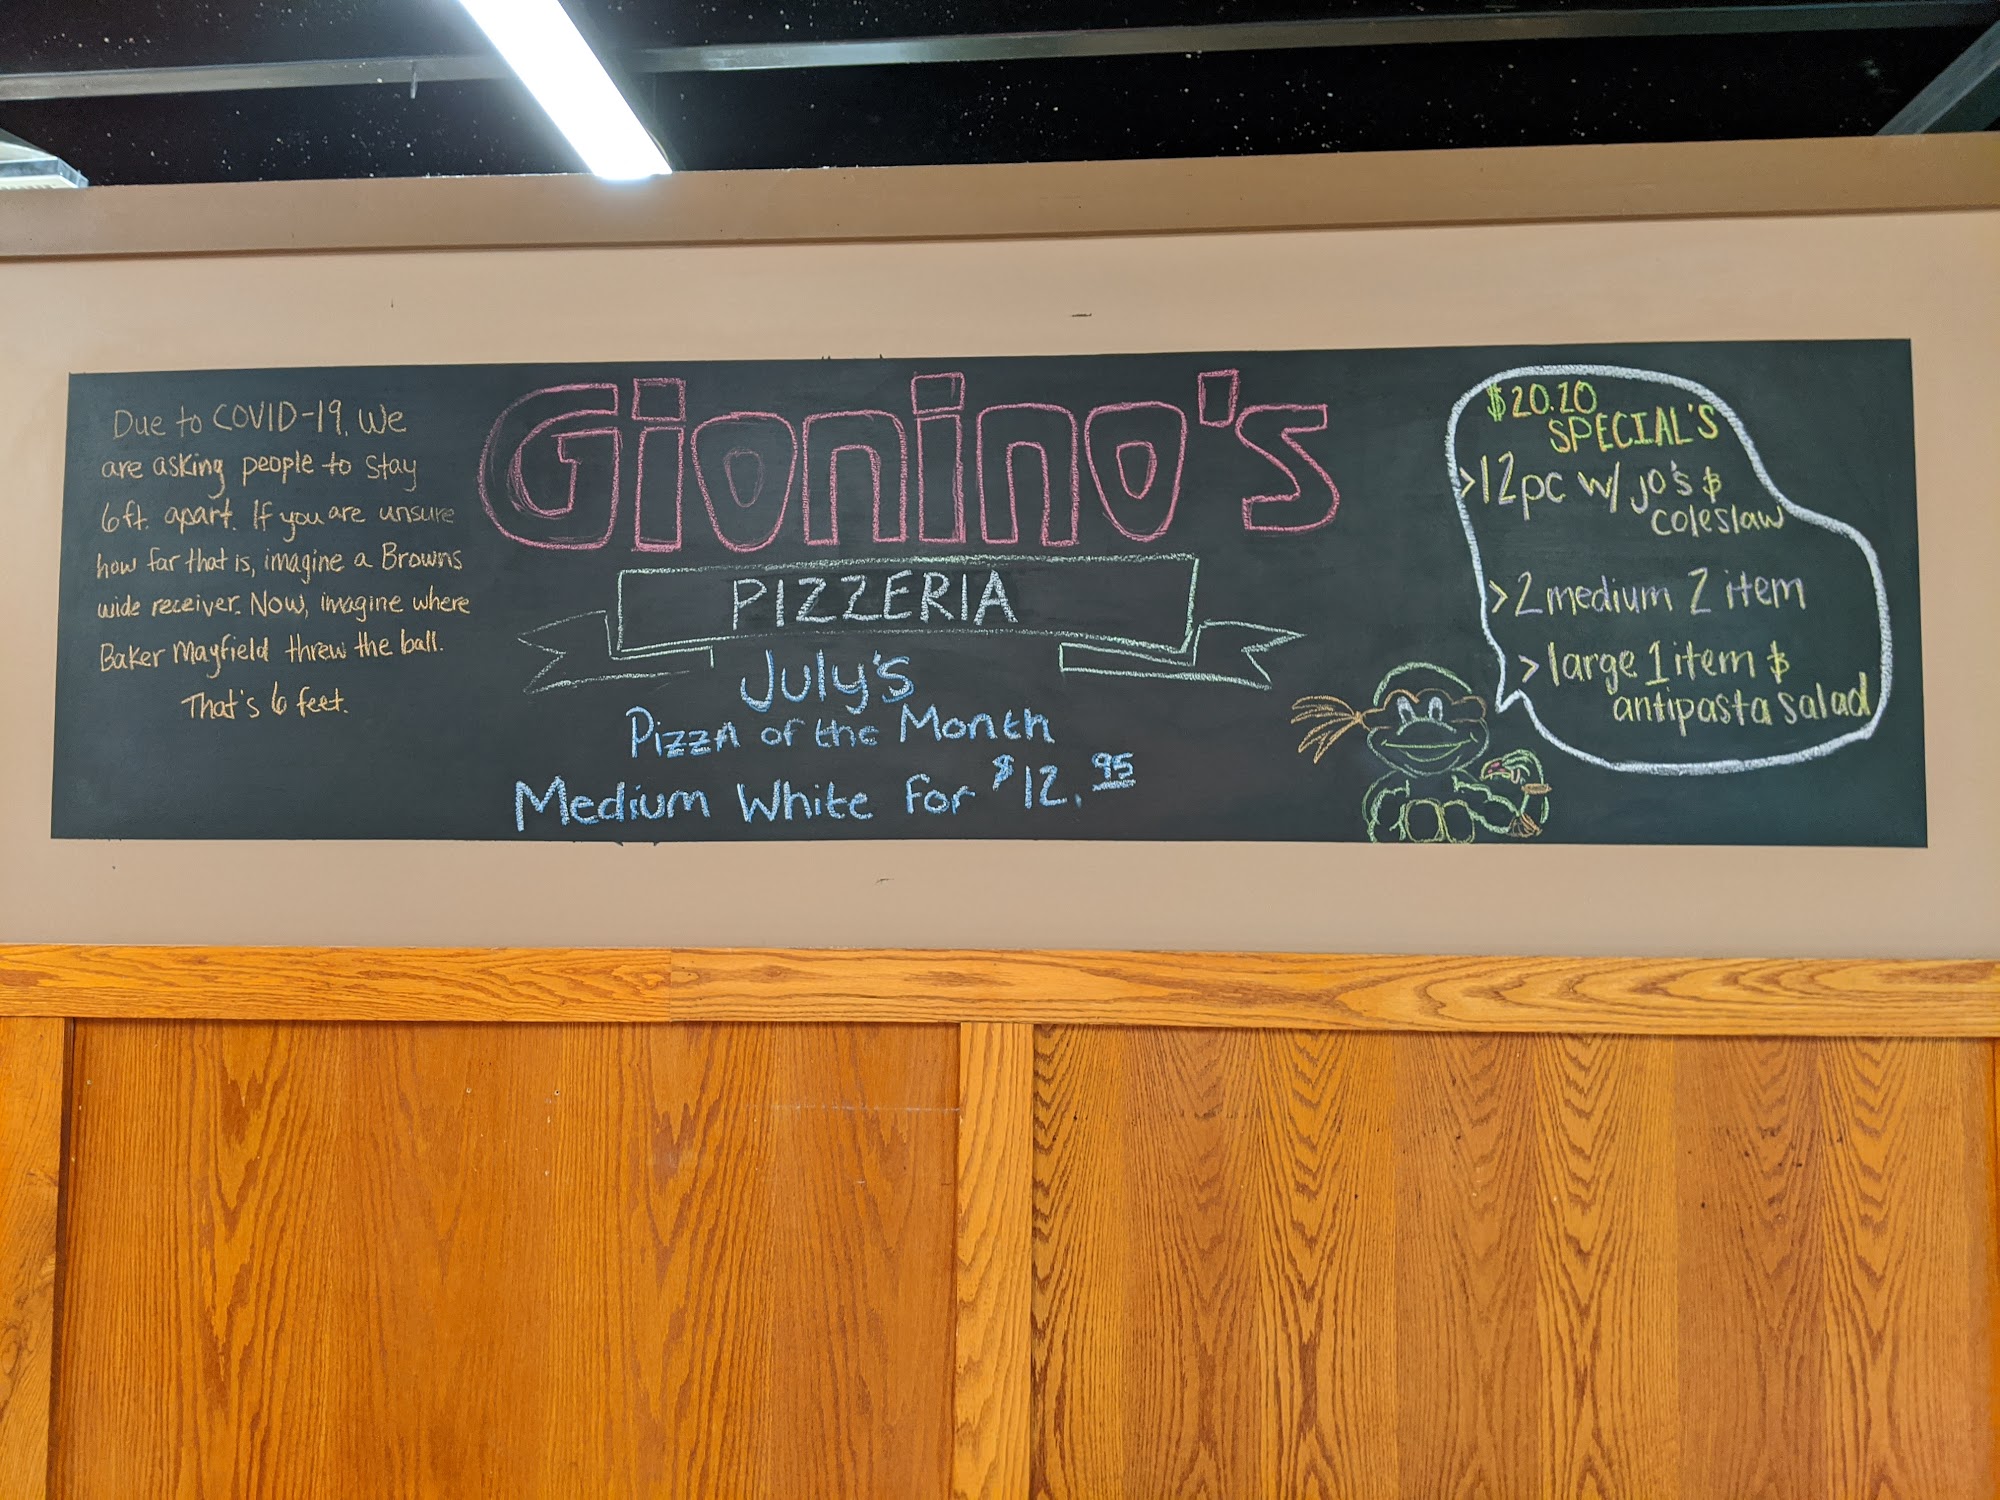 Due to COVID-19, We
are asking people to stay
6ft. apart. If you are unsure
how far that is, imagine a Browns
wide receiver. Now, imagine where
Baker Mayfield threw the ball.
That's 6 feet.
Gionino's
PIZZERIA
July's
Pizza of the Month
Medium White for $12.95
$20.20
SPECIAL'S
>12pc w/ jo's &
coleslaw
>2 medium 2 item
>large 1 item &
antipasta salad